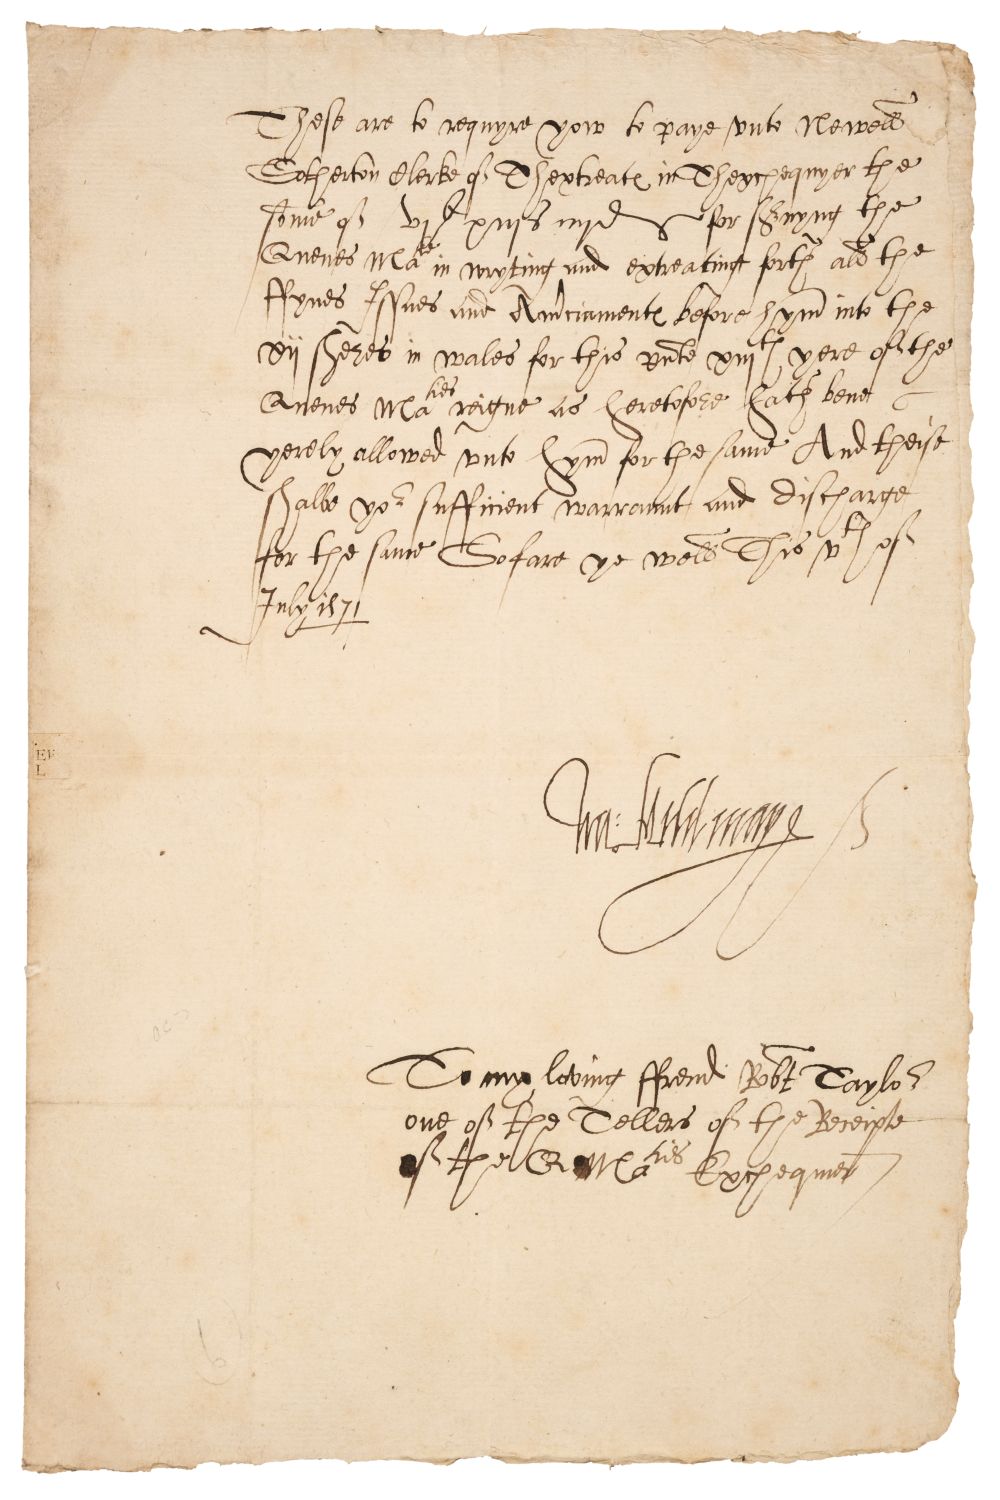 These are to requyre yow to paye vnto Newell
Sotherton Clerke of Thextreate in Thexchequyer the
some of vjli xiijs iiijd for servyng the
Quenes Matie in wryting and extreating forth all the
ffynes Issues and Amerciamente before hym into the
xij sheres in wales for this xiijth yere of the
Quenes Maties reigne as heretofore hath bene
yerely allowed vnto hym for the same And theise
shalbe yor sufficient warraunt and discharge
for the same So fare ye well This vth of
July 1571
Wa: Mildmaye
To my loving ffrend Robt Taylor
one of the Tellers of the Receipte
of the Q Maties Exchequier
EE
L
6